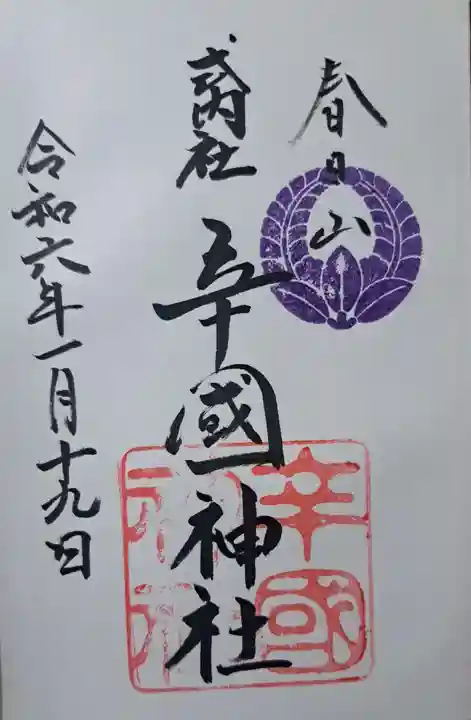 春日山
式内社
辛國神社
辛國神社
令和六年一月十九日